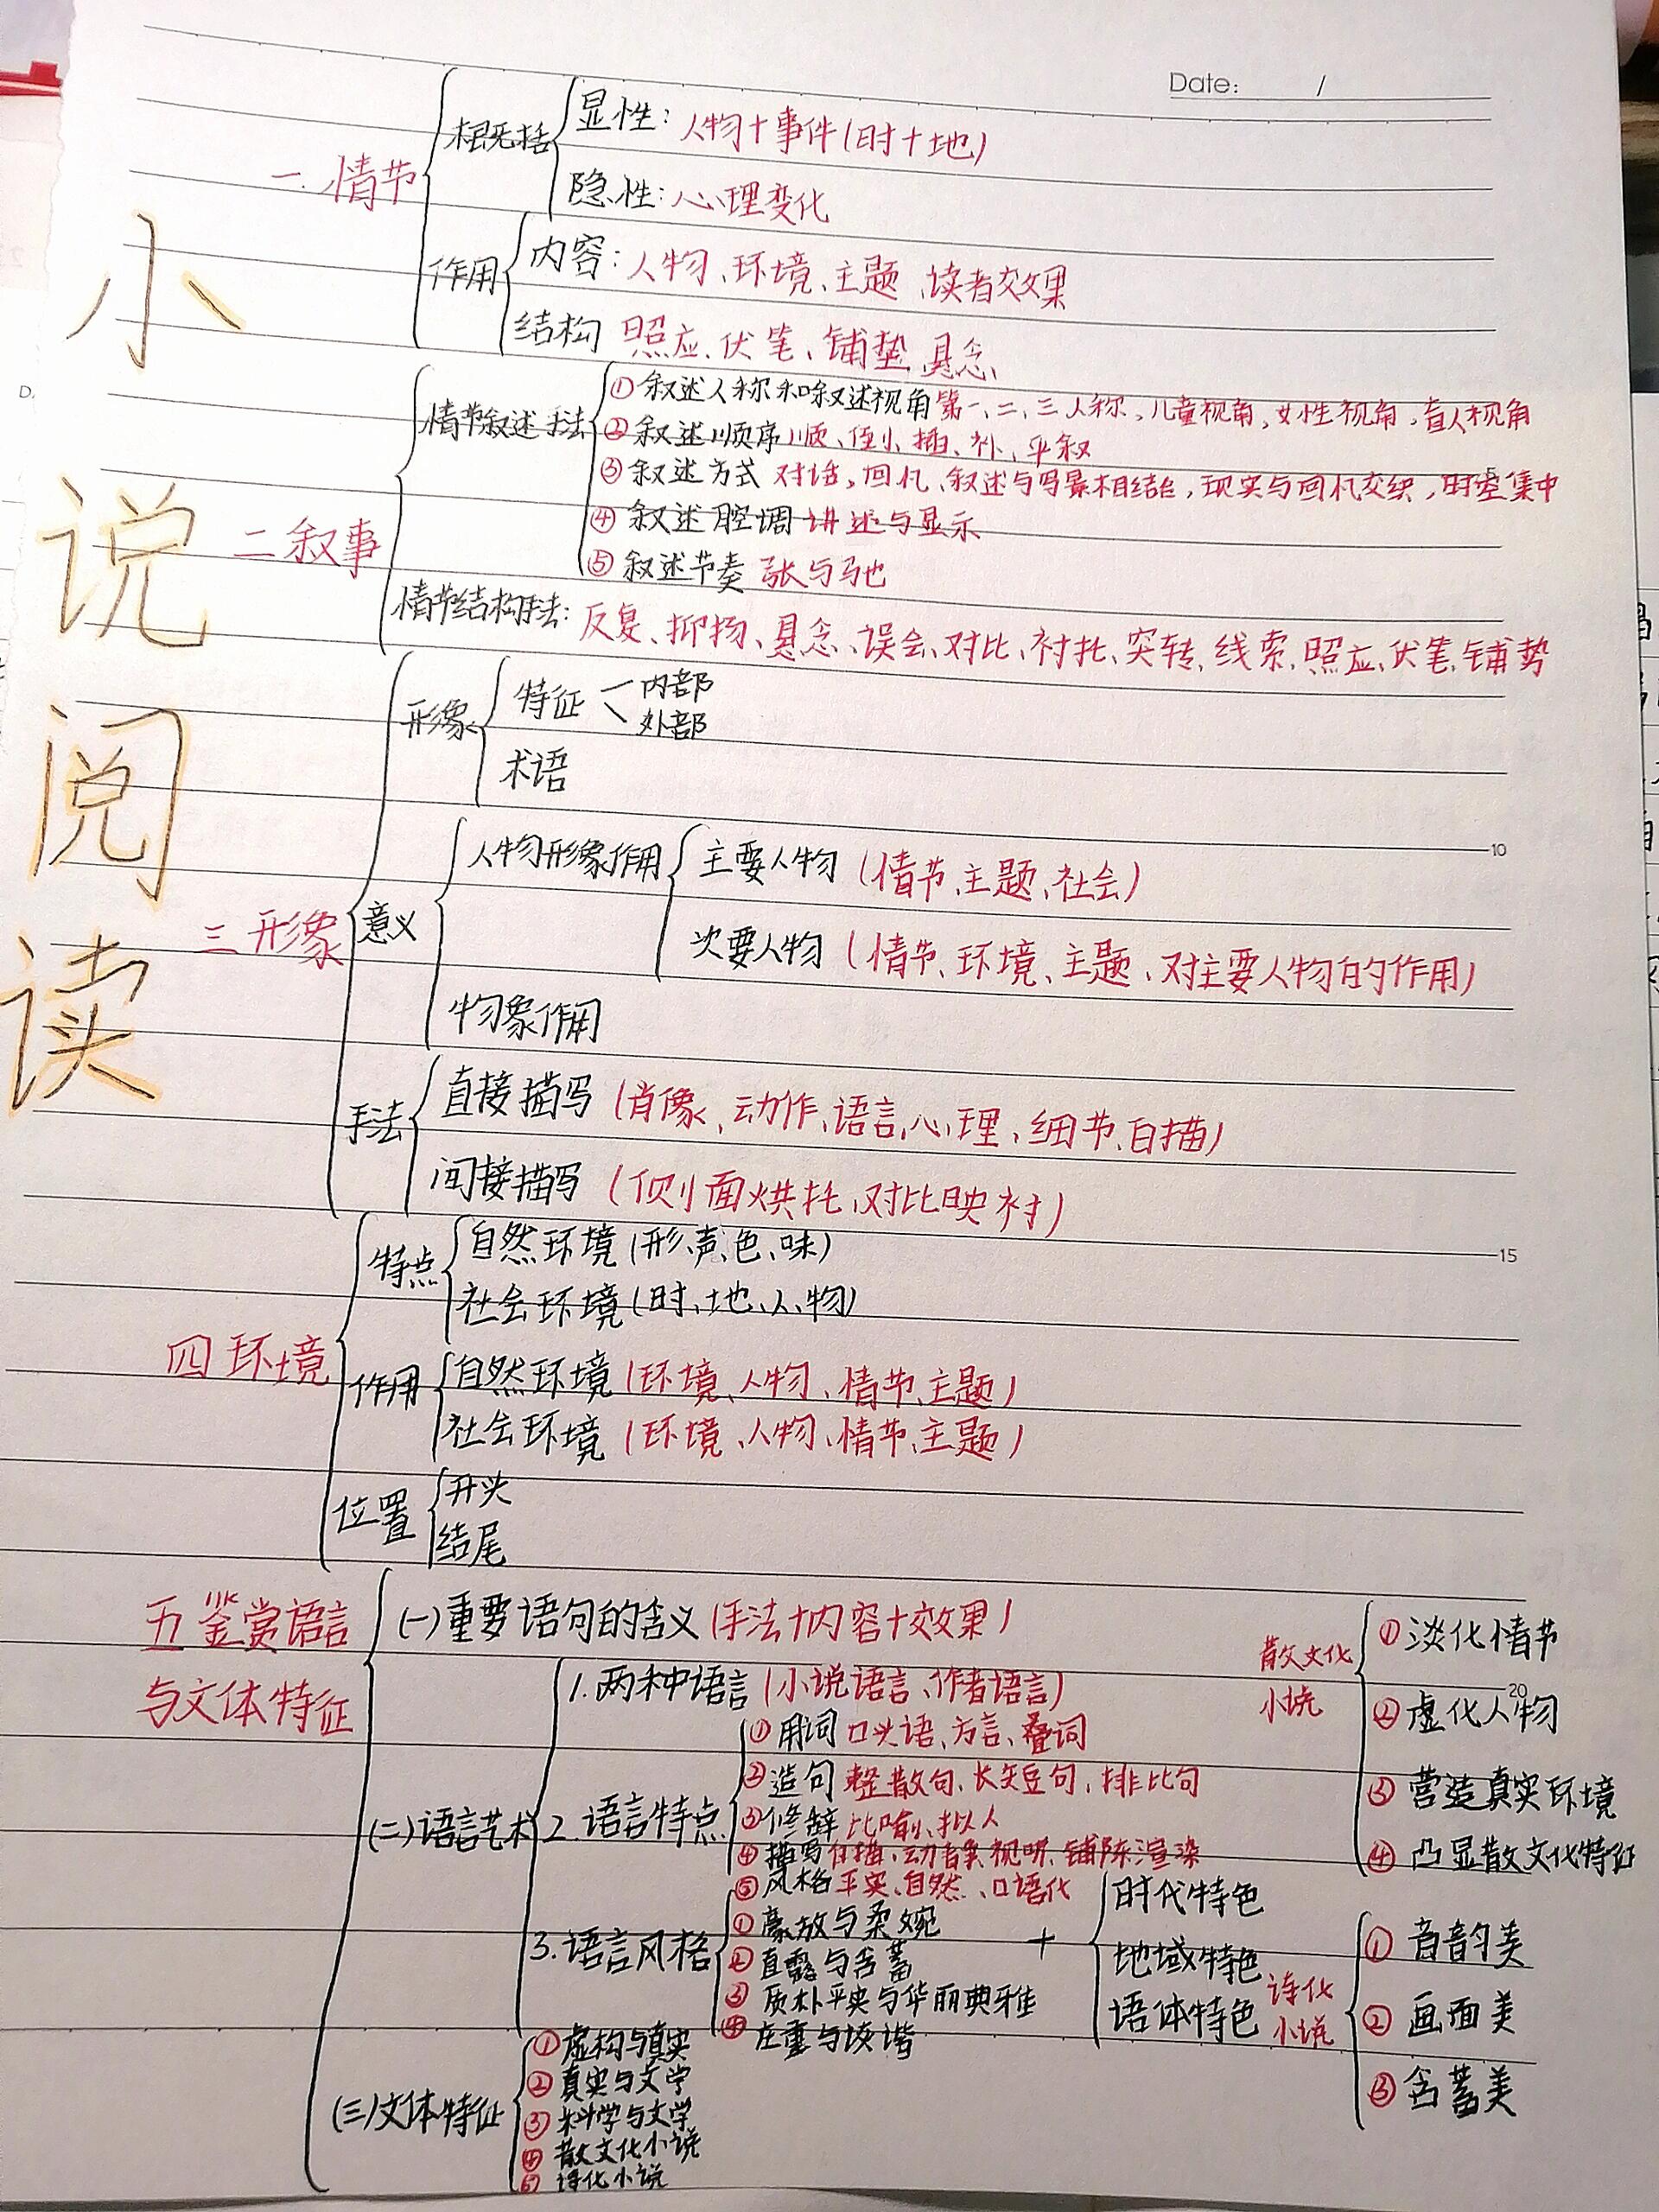 Date: /
小说阅读
一.情节
概括
显性：人物+事件(时+地)
隐性：心理变化
作用
内容：人物、环境、主题、读者效果
结构 照应、伏笔、铺垫 悬念
二 叙事
情节叙述手法
① 叙述人称和叙述视角 第一、二、三人称，儿童视角，女性视角，盲人视角
② 叙述顺序 顺、倒、插、补、平叙
③ 叙述方式 对话，回忆、叙述与写景相结合，现实与回忆交织，时空集中
5
④ 叙述腔调 讲述与显示
⑤ 叙述节奏 张与弛
情节结构手法：反复、抑扬、悬念、误会、对比、衬托、突转、线索、照应、伏笔、铺势
三 形象
形象
特征
内部
外部
术语
意义
人物形象作用
主要人物 (情节、主题、社会)
10
次要人物 (情节、环境、主题、对主要人物的作用)
物象作用
手法
直接描写 (肖像、动作、语言、心理、细节、白描)
间接描写 (侧面烘托、对比映衬)
四 环境
特点
自然环境 (形、声、色、味)
15
社会环境 (时、地、人、物)
作用
自然环境 (环境、人物、情节、主题)
社会环境 (环境、人物、情节、主题)
位置
开头
结尾
五 鉴赏语言与文体特征
(一)重要语句的含义 (手法+内容+效果)
(二)语言艺术
1.两种语言 (小说语言、作者语言)
2.语言特点
① 用词 口头语、方言、叠词
② 造句 整散句、长短句、排比句
③ 修辞 比喻、拟人
④ 描写 白描、动静 视听、铺陈渲染
⑤ 风格 平实、自然、口语化
3.语言风格
① 豪放与柔婉
② 直露与含蓄
③ 质朴平实与华丽典雅
④ 庄重与诙谐
+
时代特色
地域特色
语体特色
(三)文体特征
① 虚构与真实
② 真实与文学
③ 科学与文学
④ 散文化小说
⑤ 诗化小说
散文化小说
① 淡化情节
20
② 虚化人物
③ 营造真实环境
④ 凸显散文化特征
诗化小说
① 音韵美
② 画面美
③ 含蓄美